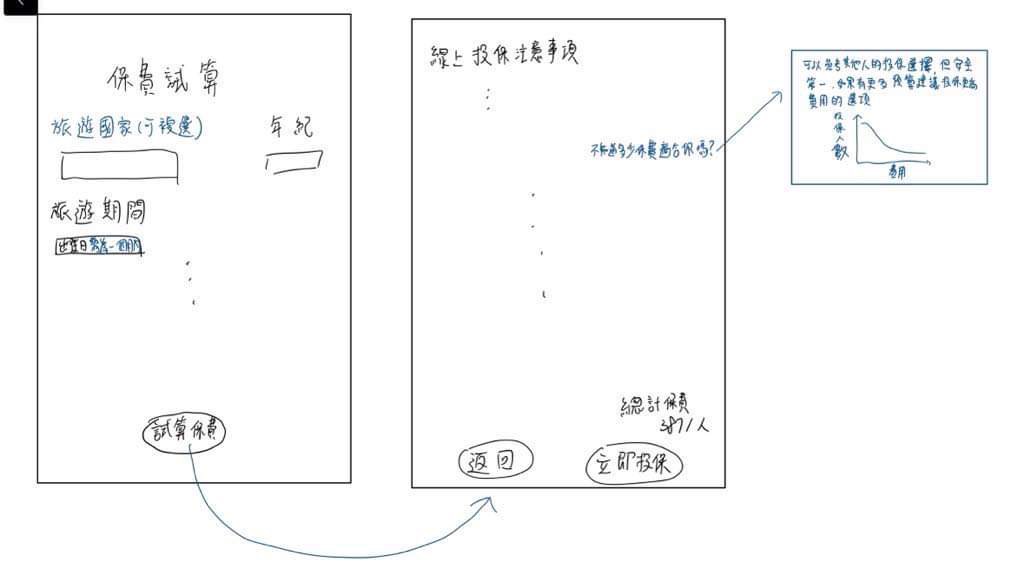 保費試算
旅遊國家(可複選)
年紀
旅遊期間
出發日
試算保費
線上投保注意事項
不知道多少保費適合你嗎?
總計保費
387/人
返回
立即投保
可以參考其他人的投保選擇,但安全
第一,如果有更多預算建議投保更高
費用的選項
投保人數
費用